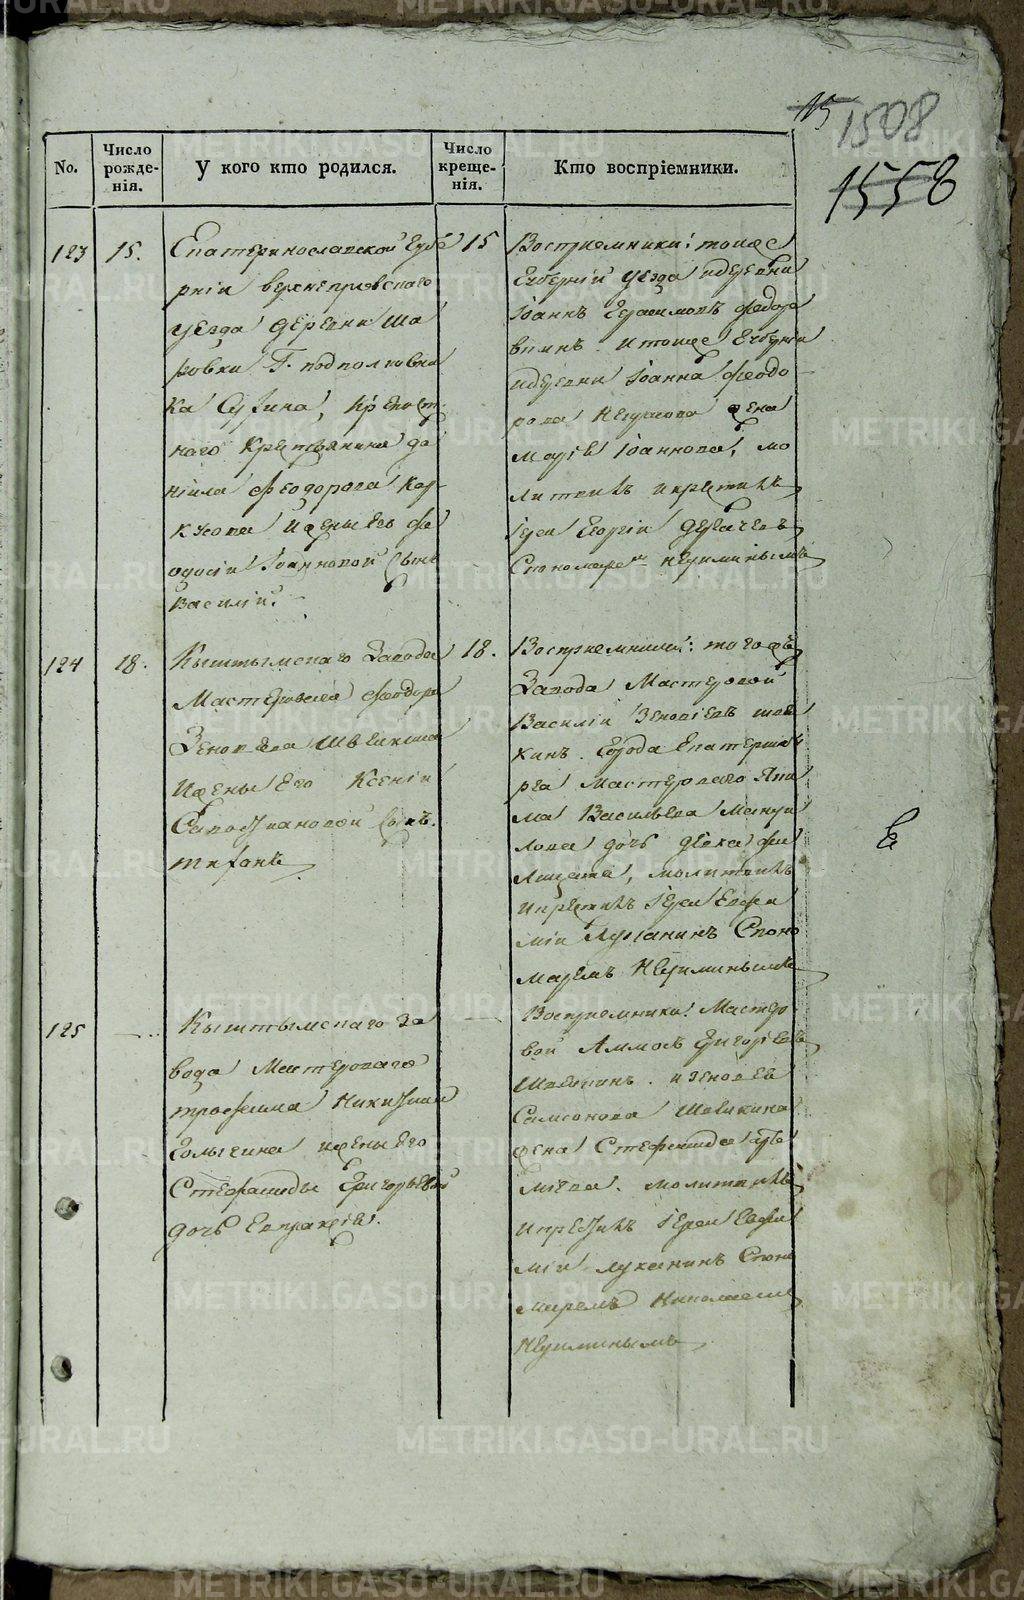 115 1508
1558
No.
Число рожде-нія.
У кого кто родился.
Число креще-нія.
Кто воспріемники.
123
15.
Екатеринославской Губе
рніи верхнепровскаго
уезда деревни Ша
ровки Г. подполковни
ка крепост
наго крестьянина да
ніила Феодорова Кор
кусова и жены его фе
одосіи Іоанновой сынъ
Василій.
15
Восприемники: тояже
Губерніи уезда и деревни
Іоаннъ Герасимовъ
и тояже Губерніи
и деревни Іоанна Феодо
рова жена
Марія Іоаннова, мо
литвилъ и крестилъ
Іерей Георгій Дерябинъ
Пономаремъ Неуиминымъ
124
18.
Кыштымскаго Завода
Мастероваго Феодора
Зеновьева Швейкина
и жены его Ксеніи
Савостьяновой сынъ
Тихонъ
18.
Восприемники: тогожъ
Завода Мастеровой
Василій Зеновіевъ Швей
кинъ. Города Екатеринбу
рга Мастероваго Яки
ма Васильева Мануи
лова дочь девка Фи
лицата, молитвилъ
и крестилъ Іерей Евфи
мій Луканинъ Поно
маремъ Неуиминымъ
125
Кыштымскаго За
вода Мастероваго
Трофима Никитина
Голыгина и жены его
Стефаниды Григорьевой
дочь Евпраксія.
Восприемники: Мастеро
вой Аммосъ Григорьевъ
Швейкинъ. и Зеновея
Самсонова Швейкина
жена Стефанида Арте
міева. молитвилъ
и крестилъ Іерей Евфи
мій Луканинъ Поно
маремъ Николаемъ
Неуиминымъ
METRIKI.GASO-URAL.RU